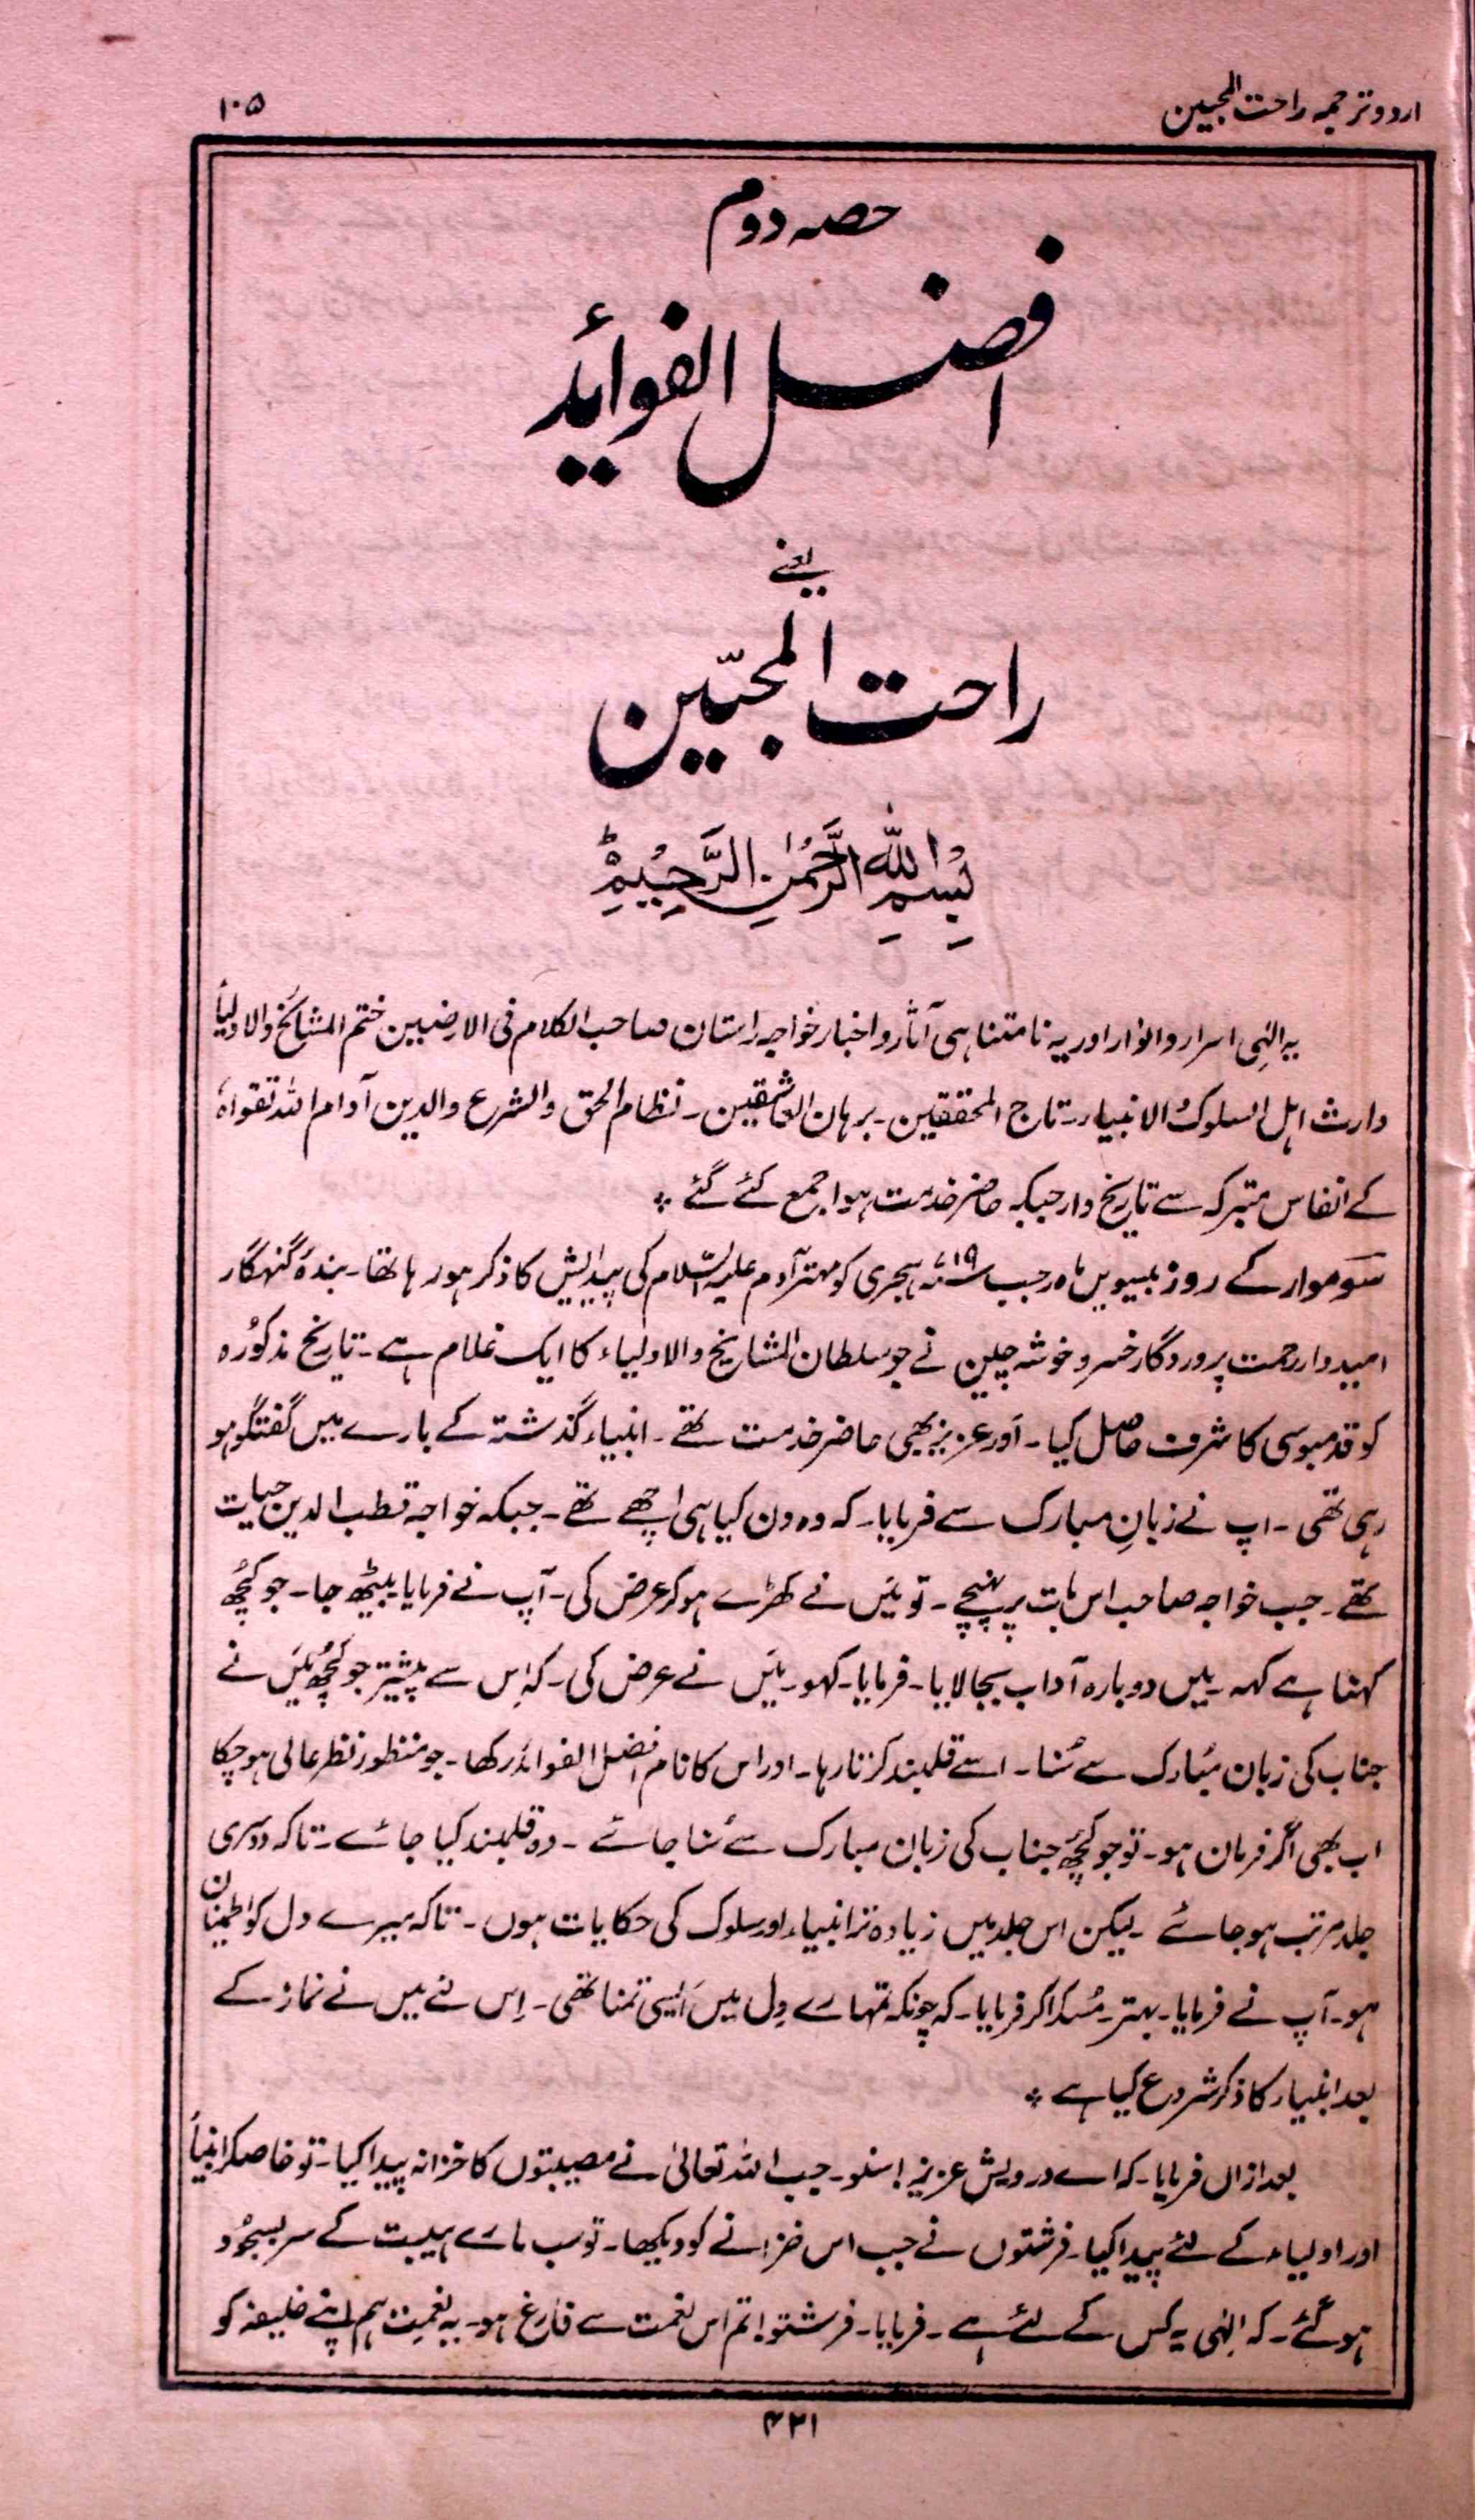 اردو ترجمہ راحت المحبین
۱۰۵
حصہ دوم
افضل الفوائد
یعنے
راحت المحبّین
بِسْمِ اللّٰهِ الرَّحْمٰنِ الرَّحِیْمِ
یہ الٰہی اسرار و انوار اور یہ نامتناہی آثار و اخبار خواجہ راستان صاحب الکلام فی الارضیین ختم المشائخ والاولیاً
وارث اہل السلوک الانبیاء۔ تاج المحققین۔ برہان العاشقین۔ نظام الحق والشرع والدین آدام اللہ تقواہٗ
کے انفاس متبرکہ سے تاریخ وار جبکہ حاضر خدمت ہوا جمع کئے گئے ؞
سوموار کے روز بیسویں ماہ رجب ۷۱۹ ہجری کو مہتر آدم علیہ السّلام کی پیدایش کا ذکر ہو رہا تھا۔ بندۂ گنہگار
امیدوار رحمت پروردگار خسرو خوشہ چین نے جو سلطان المشایخ والاولیاء کا ایک غلام ہے۔ تاریخ مذکورہ
کو قدمبوسی کا شرف حاصل کیا۔ اَور عزیز بھی حاضر خدمت تھے۔ انبیاء گذشتہ کے بارے میں گفتگو ہو
رہی تھی۔ اپ نے زبانِ مبارک سے فرمایا۔ کہ وہ دن کیا ہی اچھے تھے۔ جبکہ خواجہ قطب الدین حیات
تھے۔ جب خواجہ صاحب اس بات پر پہنچے۔ تو میَں نے کھڑے ہو کر عرض کی۔ آپ نے فرمایا بیٹھ جا۔ جو کچُھ
کہنا ہے کہہ۔ میں دوبارہ آداب بجا لایا۔ فرمایا۔ کہو۔ میَں نے عرض کی۔ کہ اِس سے پیشتر جو کچُھ میَں نے
جناب کی زبان مبُارک سے سُنا۔ اسے قلمبند کرتا رہا۔ اور اس کا نام افضل الفوائد رکھا۔ جو منظور نظر عالی ہو چکا
اب بھی اگر فرمان ہو۔ تو جو کچُھ جناب کی زبان مبارک سے سُنا جائے۔ وہ قلمبند کیا جائے۔ تاکہ دوسری
جلد مرتب ہو جائے۔ لیکن اس جلد میں زیادہ تر انبیاء اور سلوک کی حکایات ہوں۔ تاکہ میرے دل کو اطمینان
ہو۔ آپ نے فرمایا۔ بہتر۔ مُسکرا کر فرمایا۔ کہ چونکہ تمہارے دِل میں اَیسی تمنا تھی۔ اِس لئے میں نے نماز کے
بعد انبیاء کا ذکر شروع کیا ہے ؞
بعد ازاں فرمایا۔ کہ اے درویش عزیز! سنو۔ جب اللہ تعالیٰ نے مصیبتوں کا خزانہ پیدا کیا۔ تو خاصکر انبیاً
اور اولیاء کے لئے پیدا کیا۔ فرشتوں نے جب اس خزانے کو دیکھا۔ تو سب مارے ہیبت کے سر بسجُود
ہو گئے۔ کہ الٰہی یہ کس کے لئے ہے۔ فرمایا۔ فرشتو! تم اس نعمت سے فارغ ہو۔ یہ نعمت ہم اپنے خلیفہ کو
۴۲۱